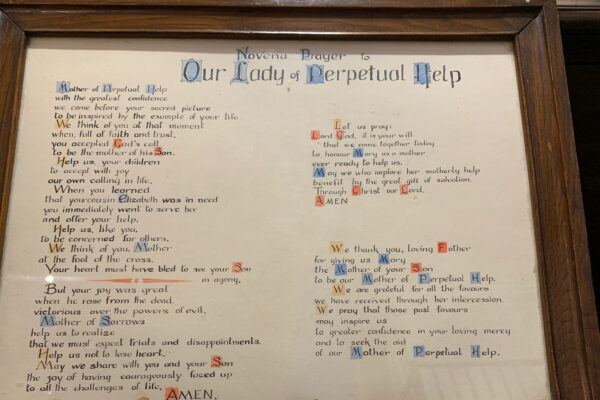 Novena Prayer to
Our Lady of Perpetual Help
Mother of Perpetual Help
with the greatest confidence
we come before your sacred picture
to be inspired by the example of your life.
We think of you at that moment
when, full of faith and trust,
you accepted God's call
to be the mother of his Son.
Help us, your children
to accept with joy
our own calling in life.
When you learned
that your cousin Elizabeth was in need
you immediately went to serve her
and offer your help.
Help us, like you,
to be concerned for others.
We think of you, Mother
at the foot of the cross.
Your heart must have bled to see your Son
in agony.
But your joy was great
when he rose from the dead
victorious over the powers of evil.
Mother of Sorrows
help us to realize
that we must expect trials and disappointments.
Help us not to lose heart.
May we share with you and your Son
the joy of having courageously faced up
to all the challenges of life.
AMEN.
Let us pray.
Lord God, it is your will
that we come together today
to honour Mary as a mother
ever ready to help us.
May we who implore her motherly help
benefit by the great gift of salvation.
Through Christ our Lord.
AMEN
We thank you, loving Father
for giving us Mary
the Mother of your Son
to be our Mother of Perpetual Help.
We are grateful for all the favours
we have received through her intercession.
We pray that those past favours
may inspire us
to greater confidence in your loving mercy
and to seek the aid
of our Mother of Perpetual Help.